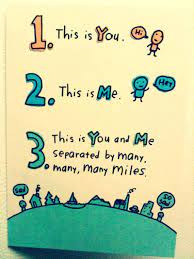 1. This is You. Hi
2. This is Me. Hey
3. This is You and Me
separated by many,
many, many miles.
sad
so sad